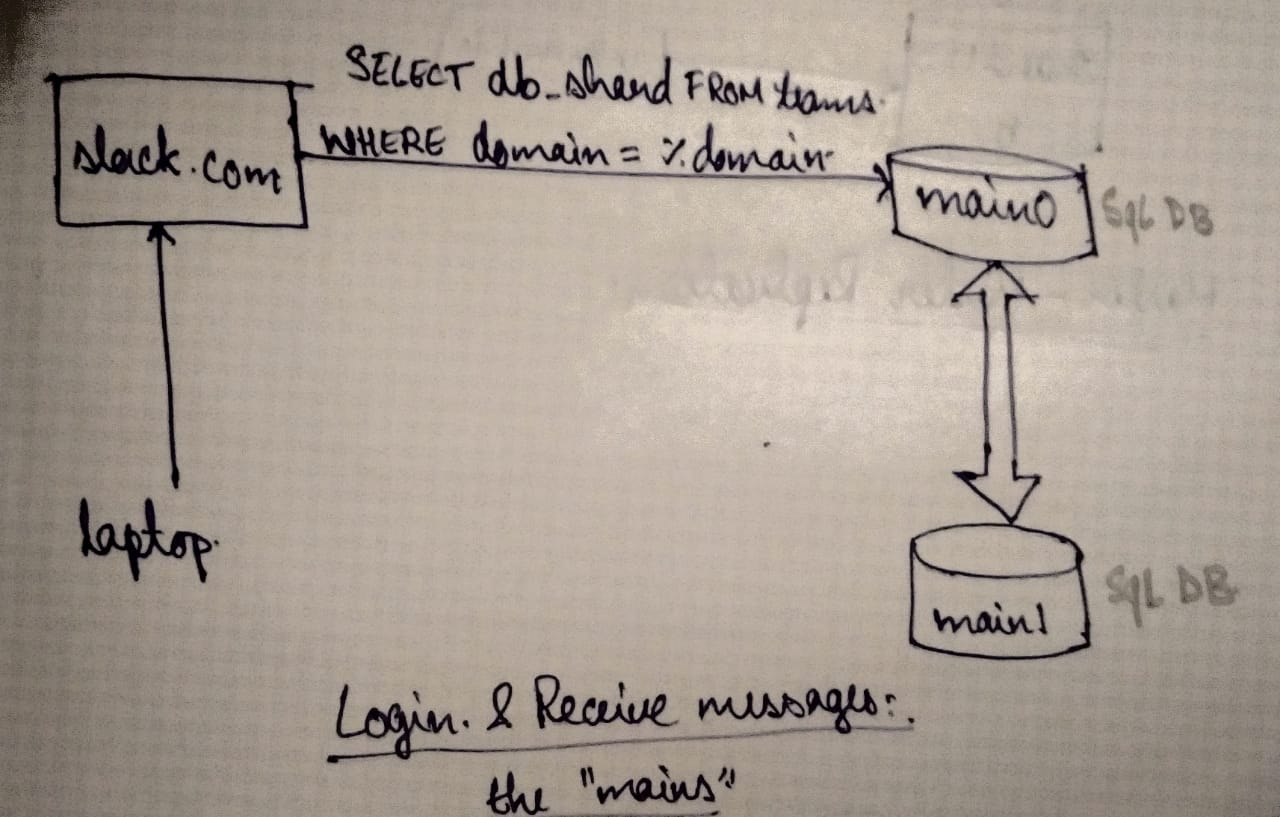 SELECT db_shard FROM teams.
WHERE domain = %domain
slack.com
main0
SqL DB
laptop.
main1
SqL DB
Login. & Receive messages:.
the "mains"